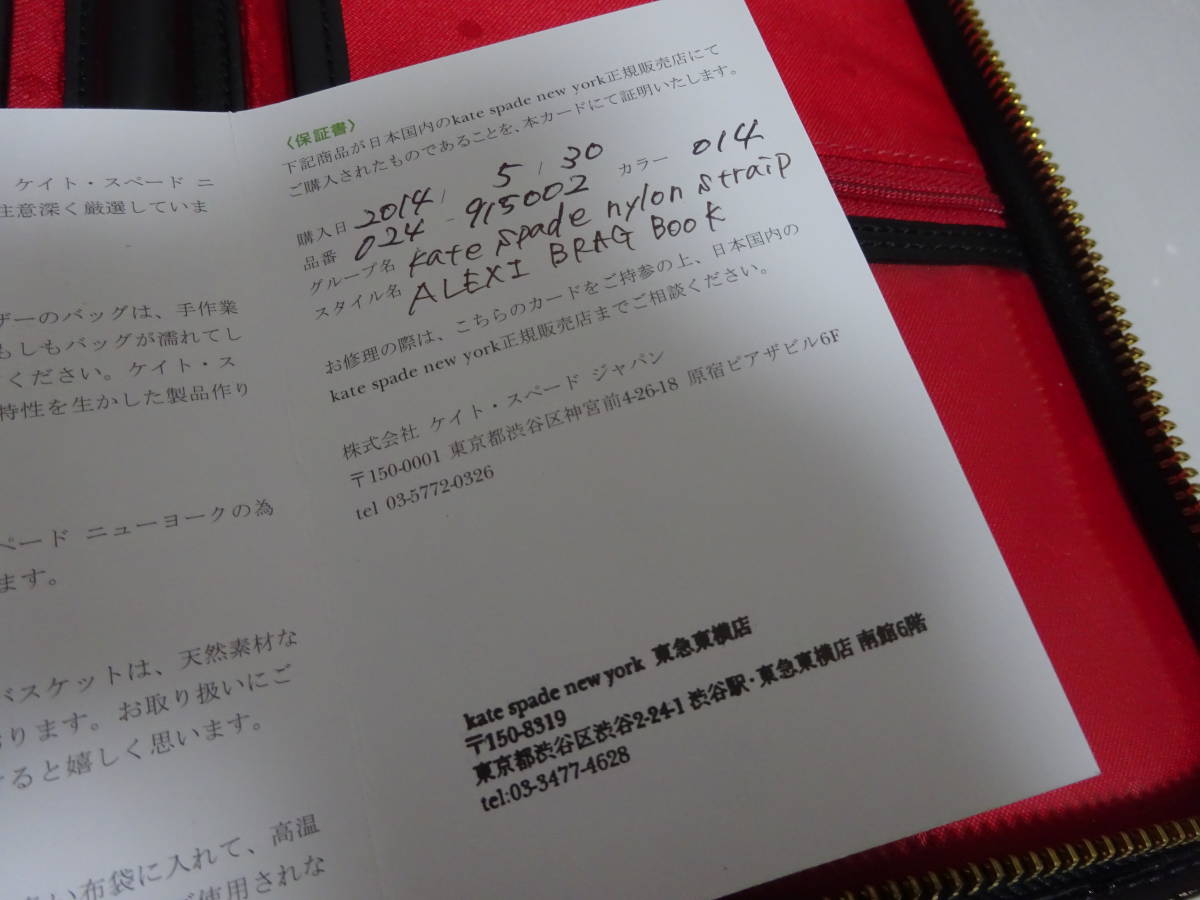 ケイト・スペード ニ
注意深く厳選していま
ザーのバッグは、手作業
もしもバッグが濡れてし
ください。ケイト・ス
特性を生かした製品作り
ペード ニューヨークの為
ます。
バスケットは、天然素材な
おります。お取り扱いにご
けると嬉しく思います。
い布袋に入れて、高温
ご使用されな
〈保証書〉
下記商品が日本国内のkate spade new york正規販売店にて
ご購入されたものであることを、本カードにて証明いたします。
購入日 2014 / 5 / 30
品番 024 - 915002 カラー 014
グループ名 kate spade nylon straip
スタイル名 ALEXI BRAG Book
お修理の際は、こちらのカードをご持参の上、日本国内の
kate spade new york正規販売店までご相談ください。
株式会社 ケイト・スペード ジャパン
〒150-0001 東京都渋谷区神宮前4-26-18 原宿ピアザビル6F
tel 03-5772-0326
kate spade new york 東急東横店
〒150-8319
東京都渋谷区渋谷2-24-1 渋谷駅・東急東横店 南館6階
tel:03-3477-4628